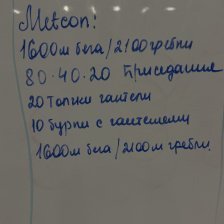 Metcon:
1600м бега/2100гребли
80·40·20 приседания
20 толчки гантели
10 бурпи с гантелями
1600м бега/2100м гребли